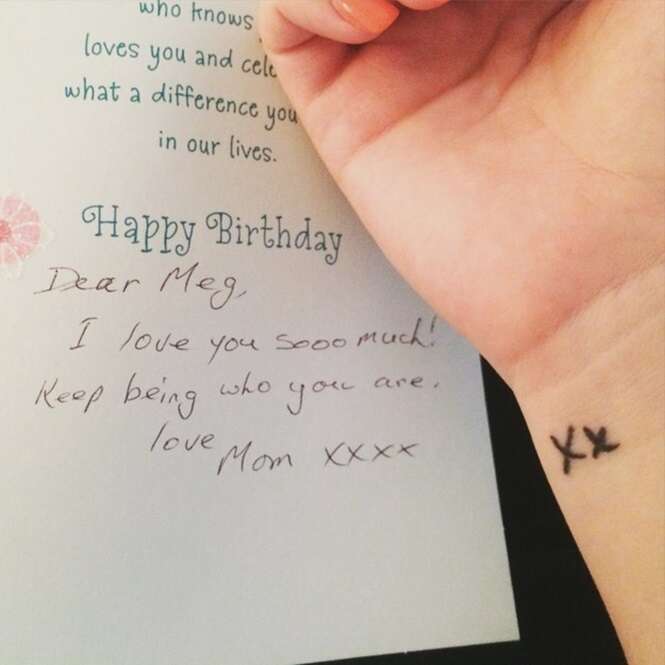 who knows
loves you and cele
what a difference you
in our lives.
Happy Birthday
Dear Meg,
I love you sooo much!
Keep being who you are.
love Mom xxxx
xx